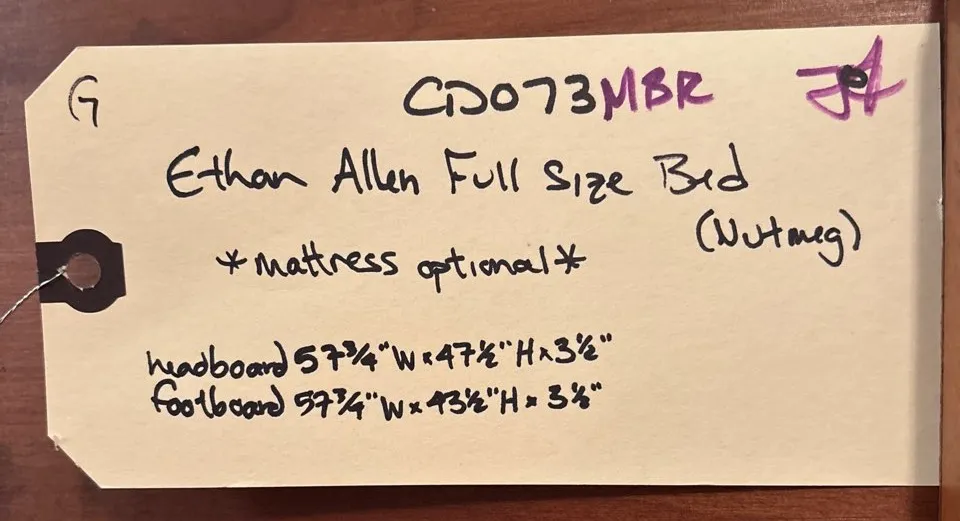 G
CD073MBR
Ethan Allen Full Size Bed
(Nutmeg)
*mattress optional*
headboard 57¾"W x 47½"H x 3½"
footboard 57¾"W x 43½"H x 3½"